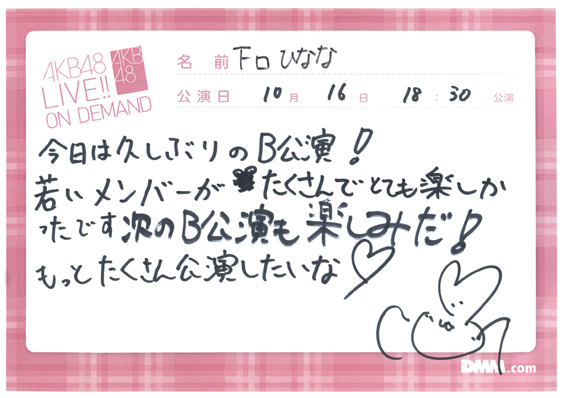 AKB48
LIVE!!
ON DEMAND
AKB
48
名前 下口ひなな
公演日 10月 16日 18:30 公演
今日は久しぶりのB公演!
若いメンバーが たくさんでとても楽しか
ったです次のB公演も楽しみだ!
もっとたくさん公演したいな♡
DMM.com